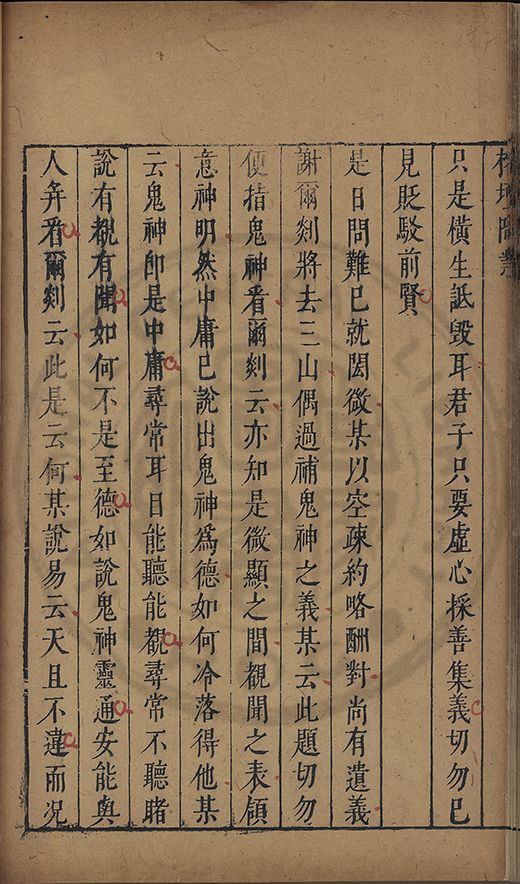 榕壇問業
只是橫生詆毀耳君子只要虛心採善集義切勿已
見貶駁前賢
是日問難已就閎微某以空疎約略酬對尚有遺義
謝爾剡將去三山偶過補鬼神之義某云此題切勿
便指鬼神看爾剡云亦知是微顯之間覩聞之表領
意神明然中庸已說出鬼神為德如何冷落得他某
云鬼神即是中庸尋常耳目能聽能覩尋常不聽睹
說有覩有聞如何不是至德如說鬼神靈通安能與
人弁看爾剡云此是云何某說易云天且不違而况